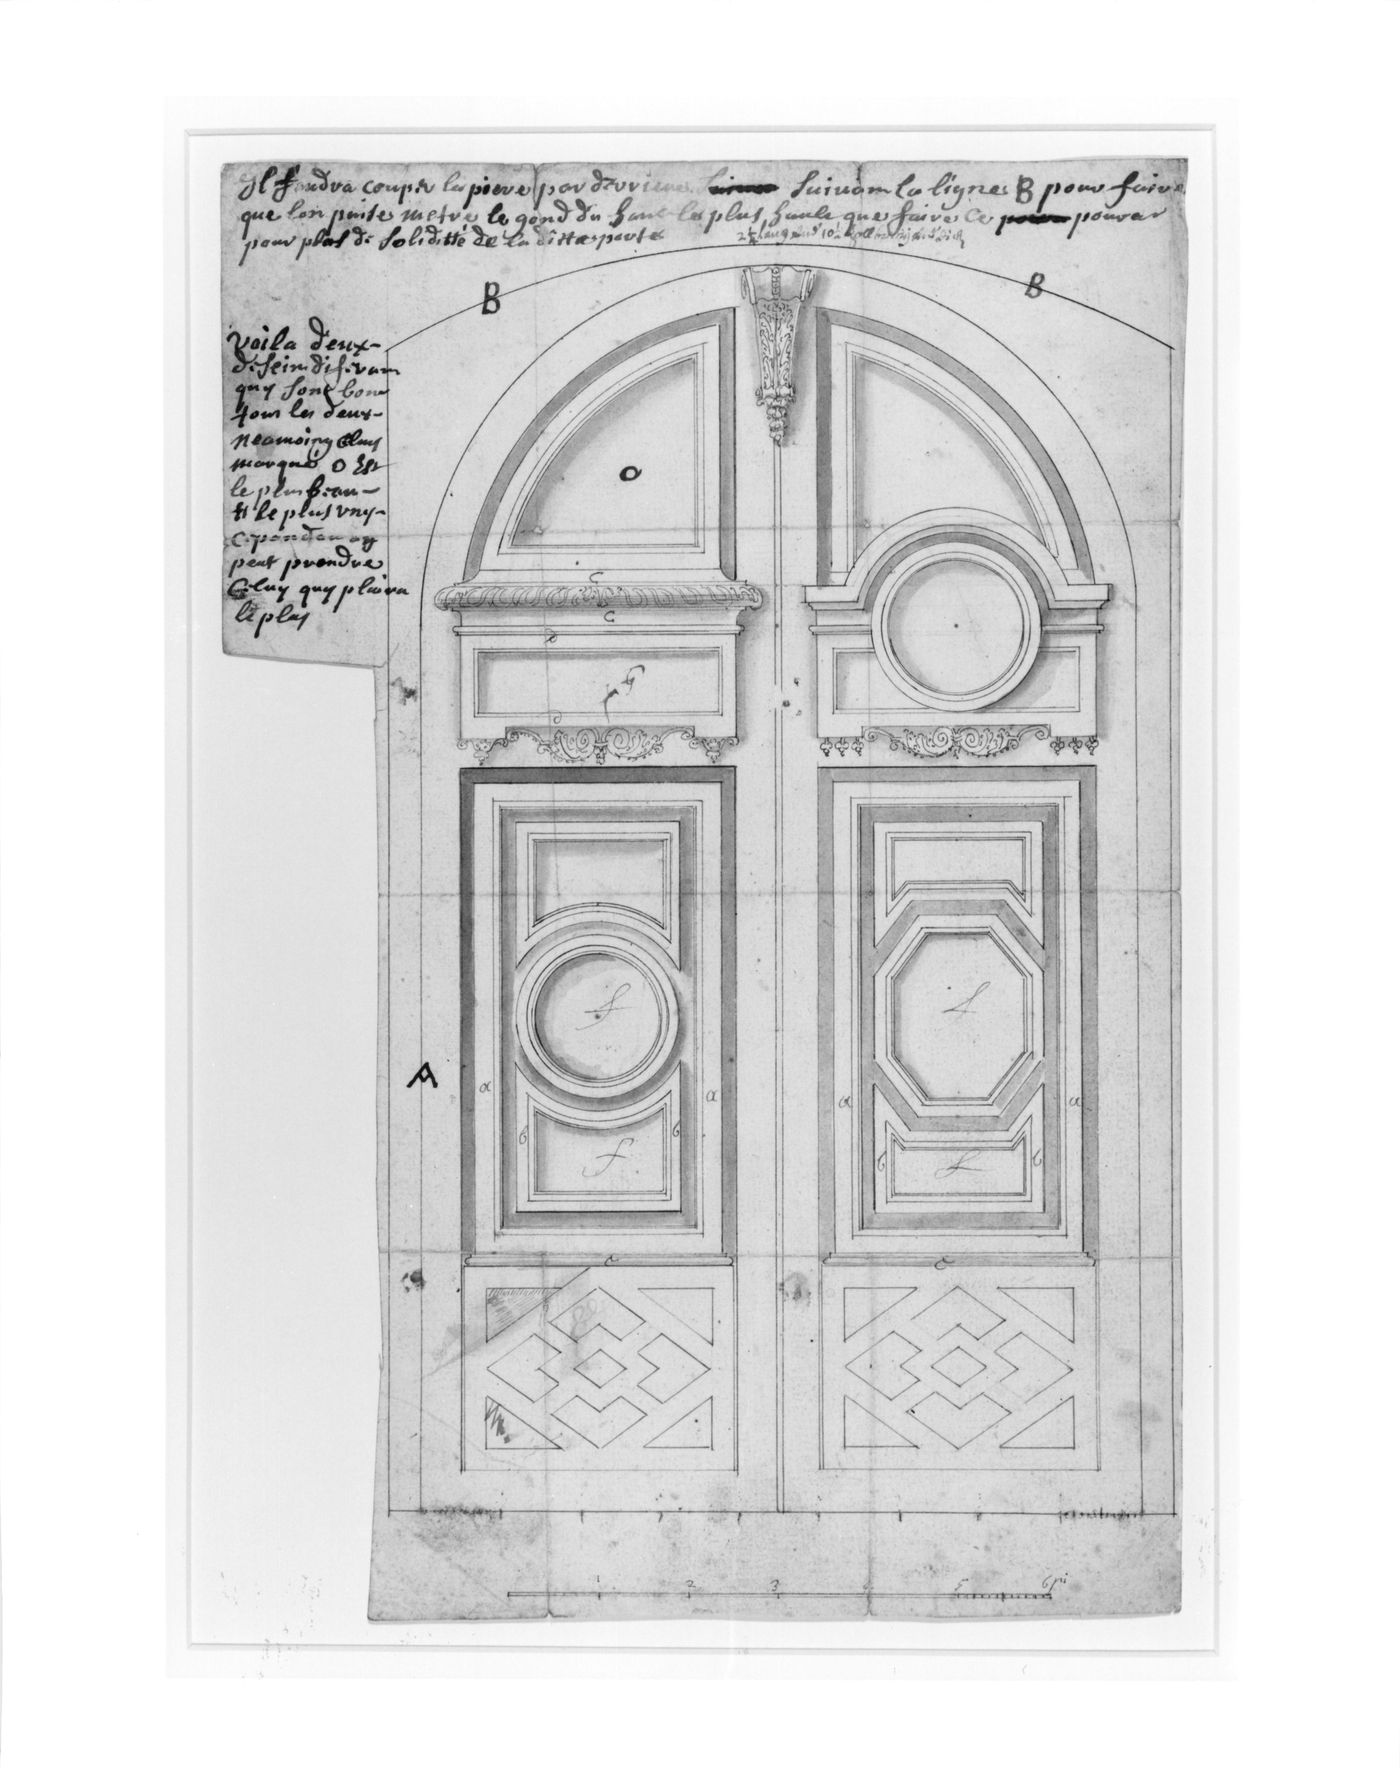 Il faudra couper la piere par derriere suivam la ligne B pour faire
que lon puise metre le gond du haut le plus haule que faire ce pouvar
pour plus de soliditté de la ditte porte
B
B
voila deux
desein diferam
quy sont bon
tous les deux
neamoins Celuy
marqué O Est
le plus beau
et le plus vny
cependan on
peut prendre
Celuy quy plaira
le plus
O
C
C
f
f
f
A
a
a
a
a
b
b
b
b
f
f
C
C
1 2 3 4 5 6 pi